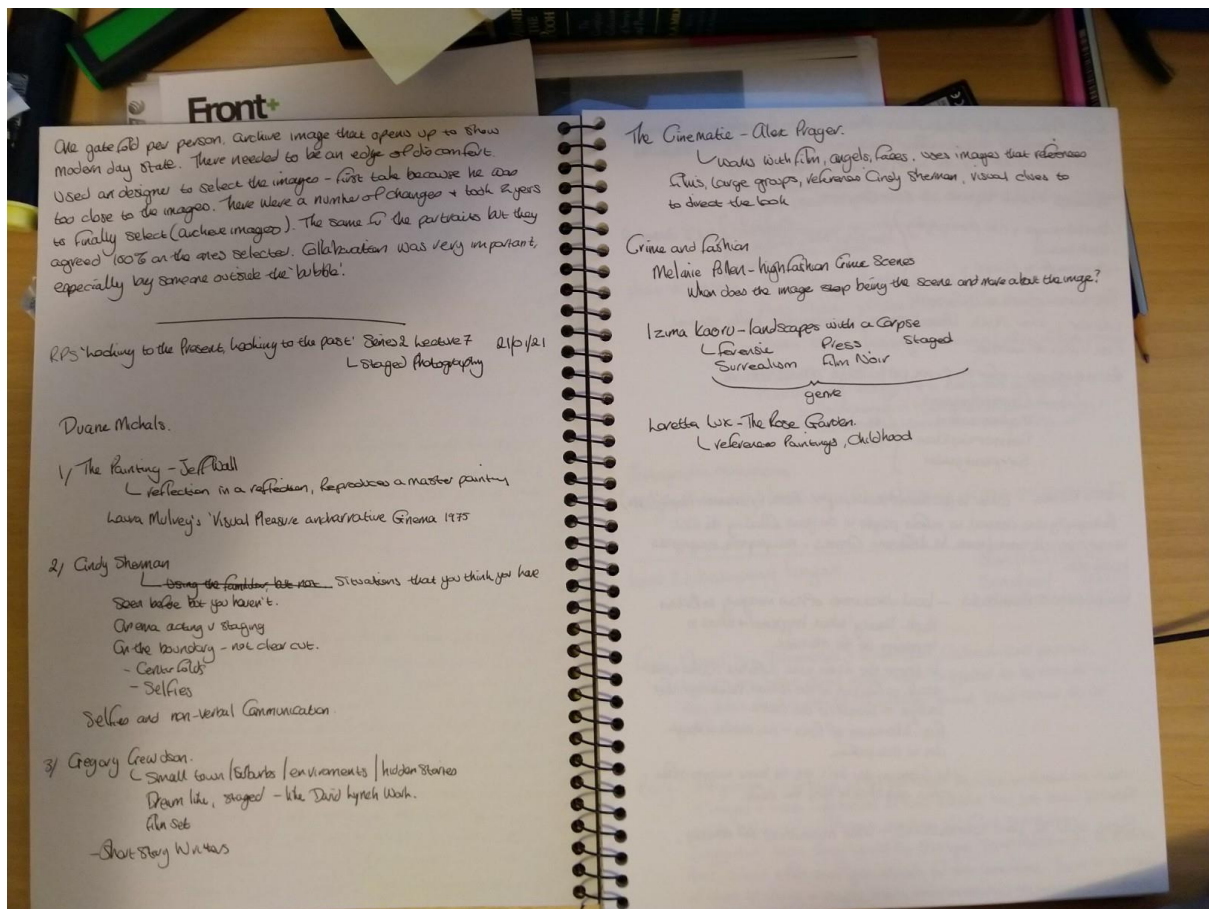 Front+
One gate fold per person. archive image that opens up to show
modern day state. There needed to be an edge of discomfort.
Used an designer to select the images - first take because he was
too close to the images. There were a number of changes + took 2 yers
to finally select (archive images). The same for the portraits but they
agreed 100% on the ones selected. Collaboration was very important,
especially by someone outside the 'bubble'.
RPS 'Looking to the Present, Looking to the past' Series 2 Lecture 7 21/01/21
Staged Photography
Duane Michals.
1/ The Painting - Jeff Wall
reflection in a reflection, Reproduces a master painting
Laura Mulvey's 'Visual Pleasure and narrative Cinema 1975
2/ Cindy Sherman
Using the familiar, but not Situations that you think you have
Seen before but you haven't.
Cinema acting v staging
On the boundary - not clear cut.
- Centerfolds
- Selfies
Selfies and non-verbal Communication.
3/ Gregory Crewdson.
Small town / Suburbs / enviroments / hidden stories
Dream like, staged - like David Lynch Work.
film set
- Short Story Writers
The Cinematic - Alex Prager.
works with film, angels, faces. uses images that references
films, large groups, reference Cindy Sherman, visual clues to
to direct the look
Crime and fashion
Melanie Pullen - high fashion Crime Scenes
When does the image stop being the scene and more about the image?
Izima Kaoru - landscapes with a Corpse
Forensic Press Staged
Surrealism Film Noir
genre
Loretta Lux - The Rose Garden.
references Paintings, Childhood